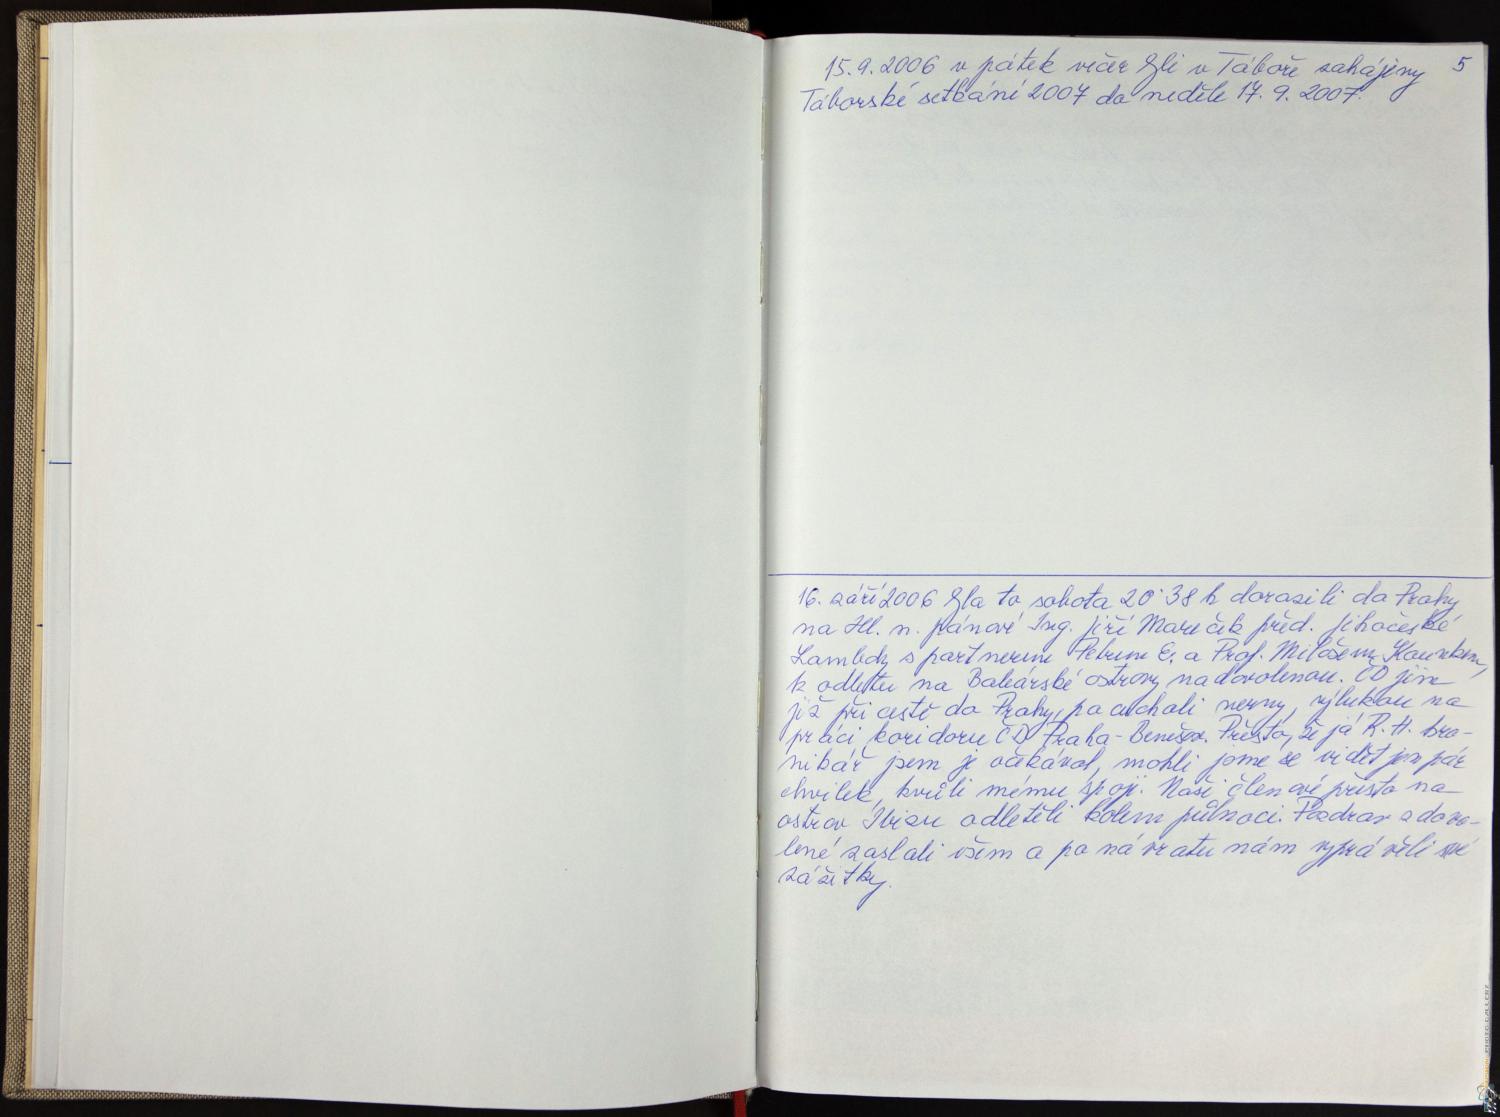 15.9.2006 v pátek večer byli v Táboře zahájeny 5
Táborské setkání 2007 do neděle 17. 9. 2007.
16. září 2006 byla to sobota 20˙38 h dorazili do Prahy
na Hl. n. pánové Ing. Jiří Mareček před. Jihočeské
Lambdy s partnerem Petrem E. a Prof. Milošem
k odletu na Baleárské ostrovy na dovolenou. ČD jim
již při cestě do Prahy, pocuchali nervy, výlukou na
práci koridoru ČD Praha-Benešov. Přesto, že já R. H. kro-
nikář jsem je očekával, mohli jsme se vidět jen pár
chvilek, kvůli mému spoji. Naši členové přesto na
ostrov Ibizu odletěli kolem půlnoci. Pozdrav z dovo-
lené zaslali všem a po návratu nám vyprávěli své
zážitky.